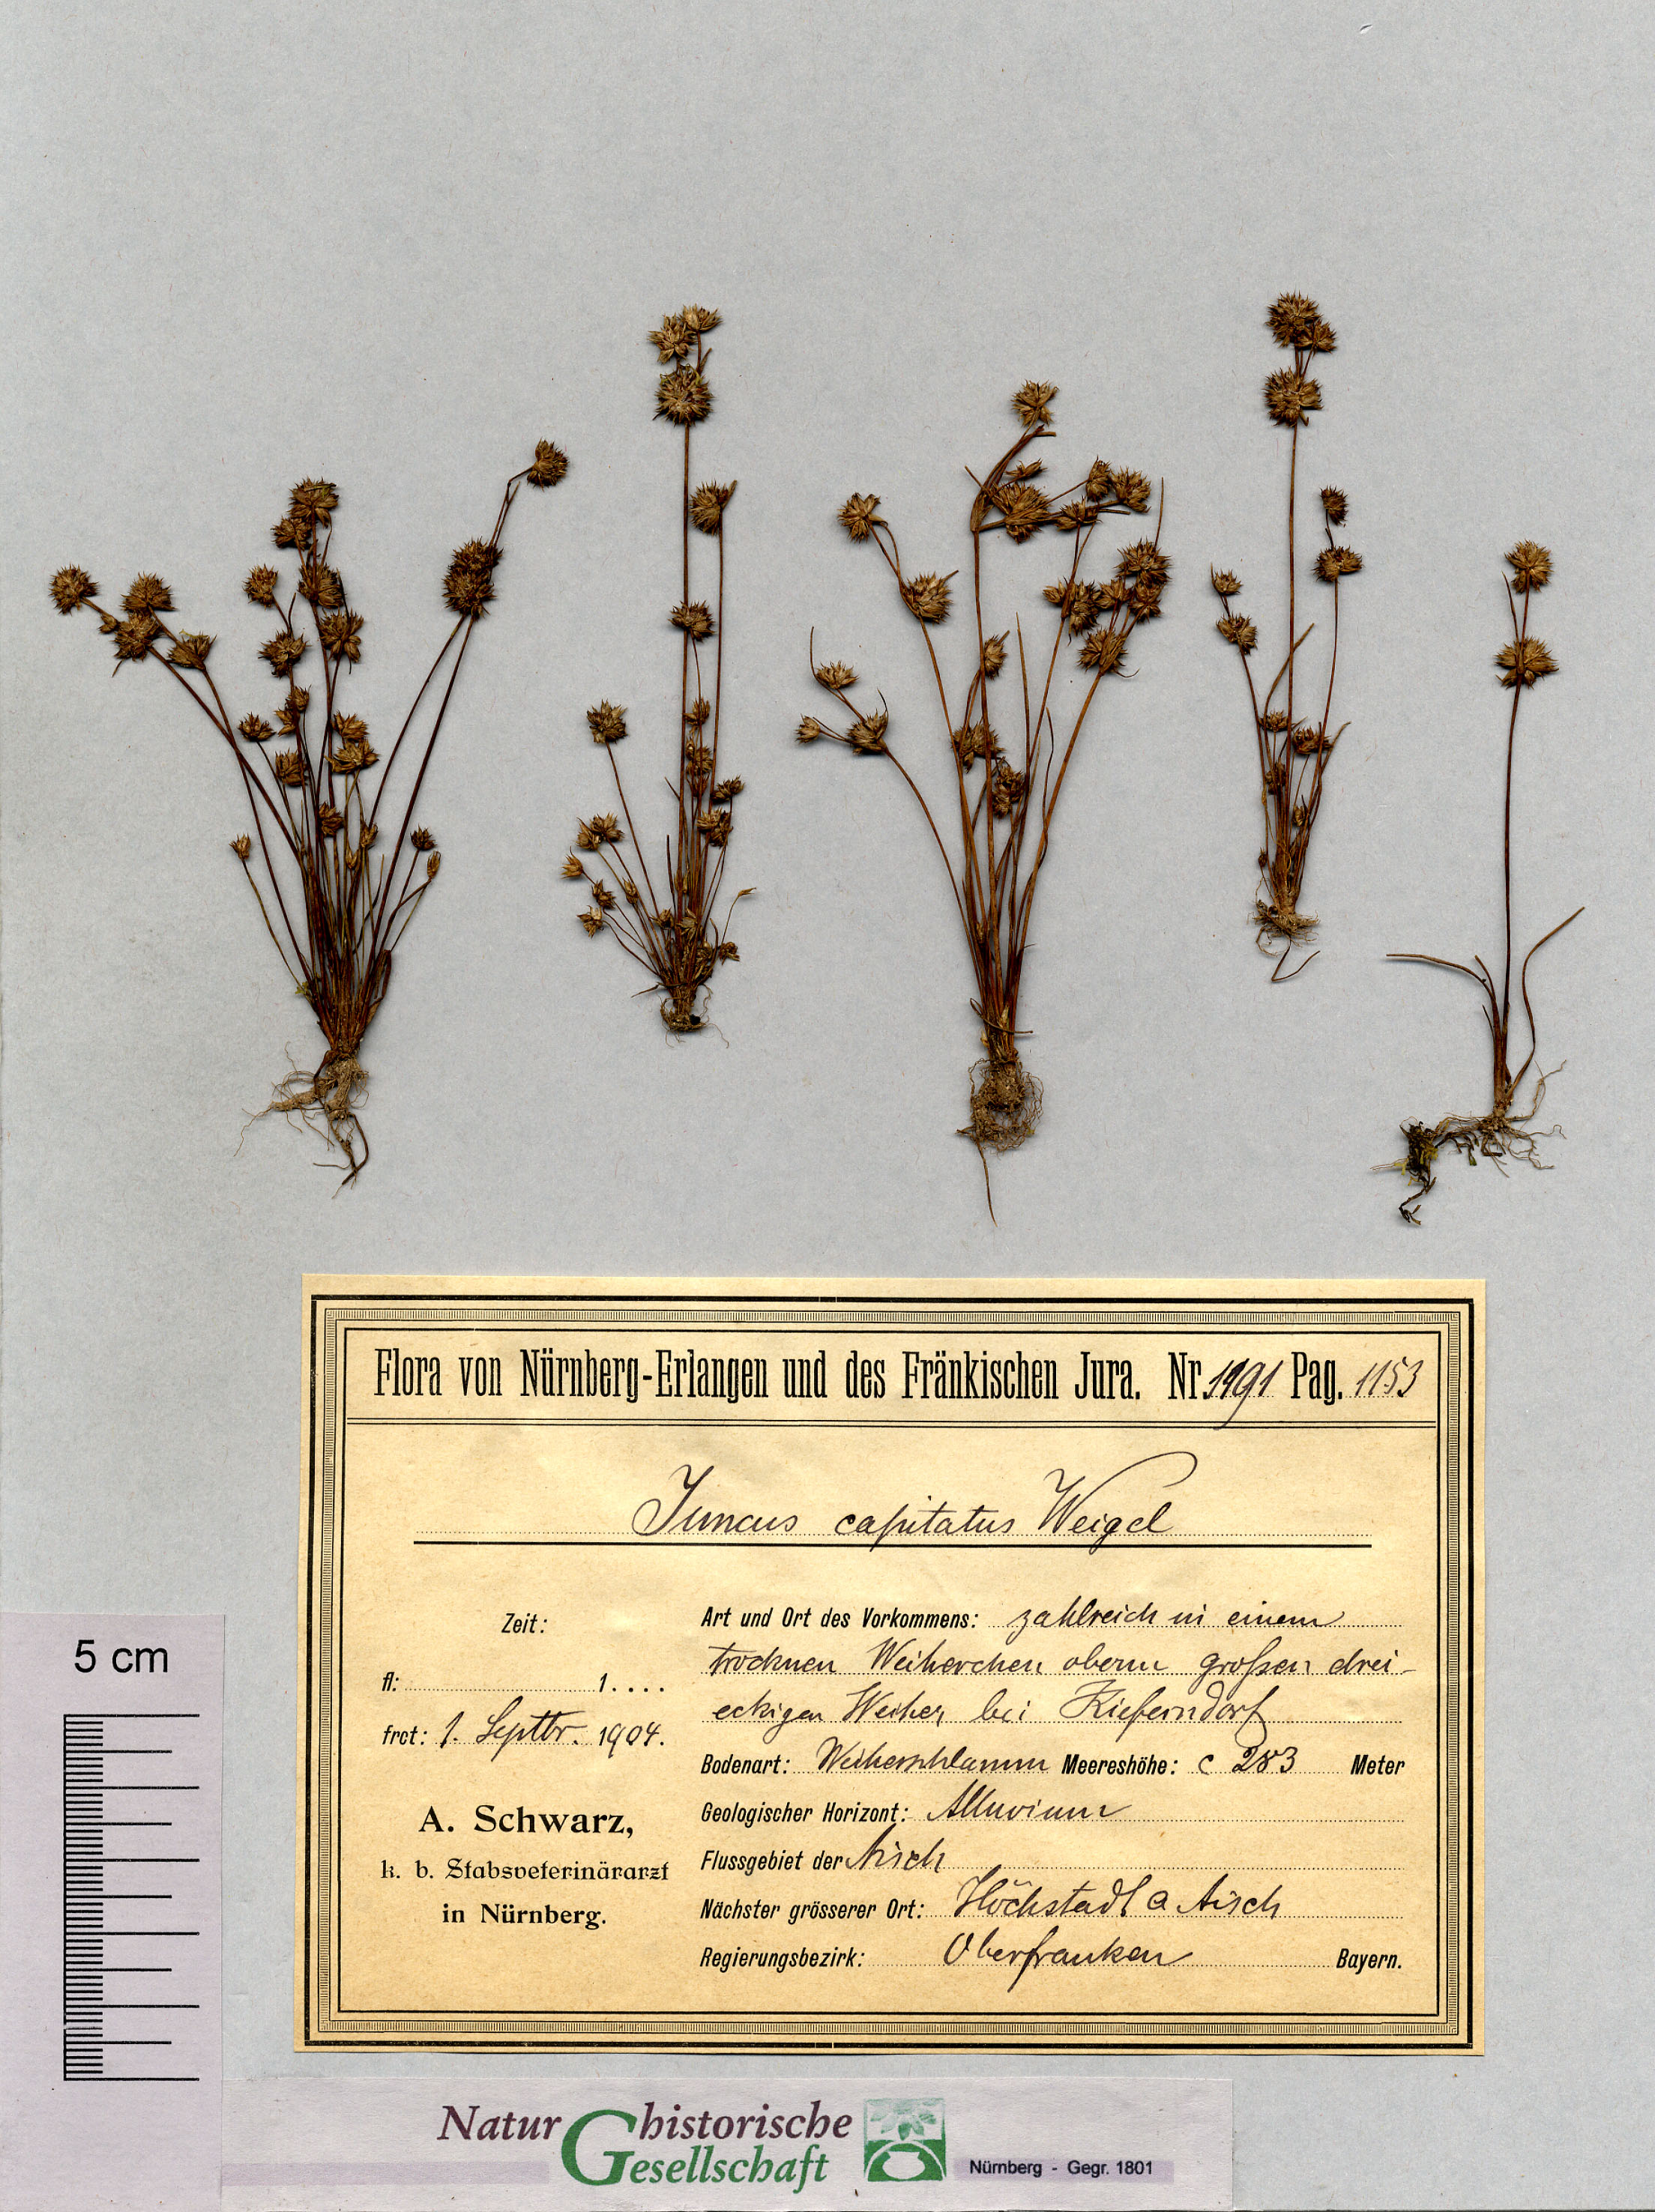 Flora von Nürnberg-Erlangen und des Fränkischen Jura. Nr. 1191 Pag. 1153
Juncus capitatus Weigel
Zeit:
fl: 1....
frct: 1. Septbr. 1904.
A. Schwarz,
k. b. Stabsveterinärarzt
in Nürnberg.
Art und Ort des Vorkommens: zahlreich in einem
trocknen Weiherchen oberm großen drei-
eckigen Weiher bei Kieferndorf
Bodenart: Weiherschlamm Meereshöhe: c 283 Meter
Geologischer Horizont: Alluvium
Flussgebiet der Aisch
Nächster grösserer Ort: Höchstadt a Aisch
Regierungsbezirk: Oberfranken Bayern.
5 cm
Natur historische
Gesellschaft
Nürnberg - Gegr. 1801